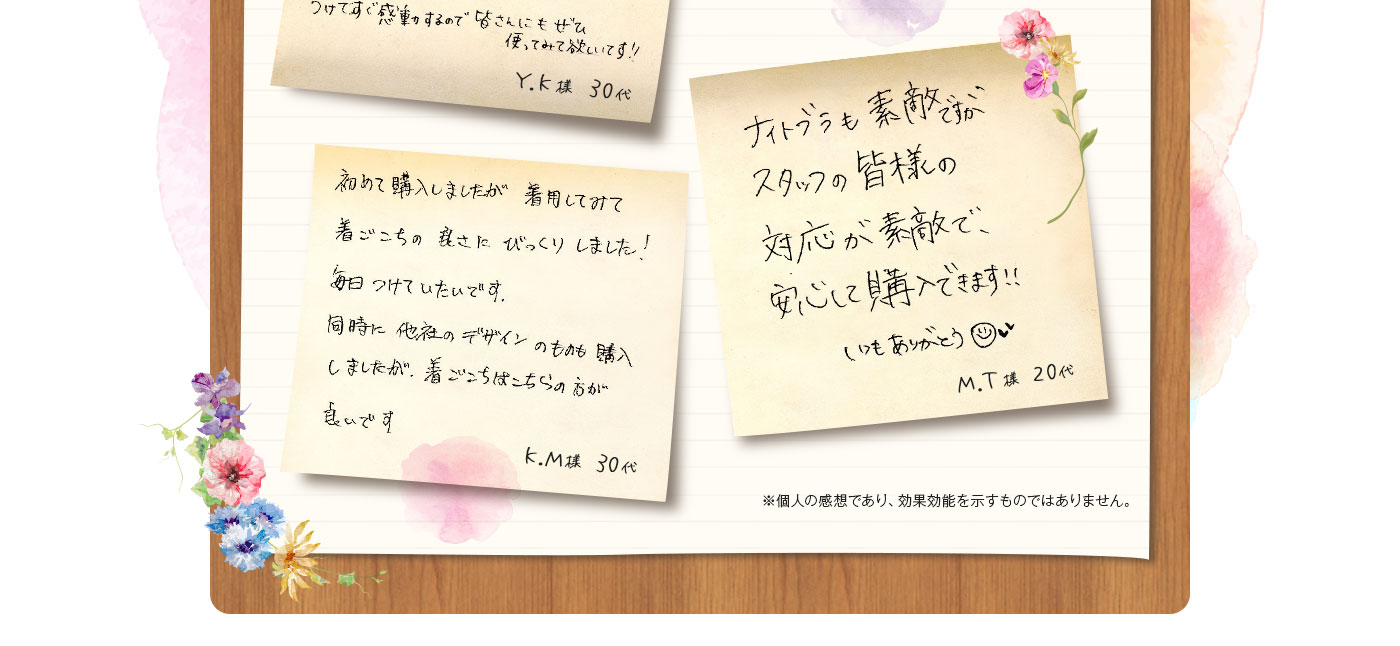 つけてすぐ感動するので皆さんにもぜひ
使ってみて欲しいです!!
Y.K様 30代
初めて購入しましたが 着用してみて
着ごこちの良さに びっくり しました!
毎日つけていたいです。
同時に 他社の デザインのものも 購入
しましたが、着ごこちはこちらの方が
良いです
K.M様 30代
ナイトブラも素敵ですが
スタッフの皆様の
対応が素敵で、
安心して購入できます!!
いつもありがとう
M.T様 20代
※個人の感想であり、効果効能を示すものではありません。